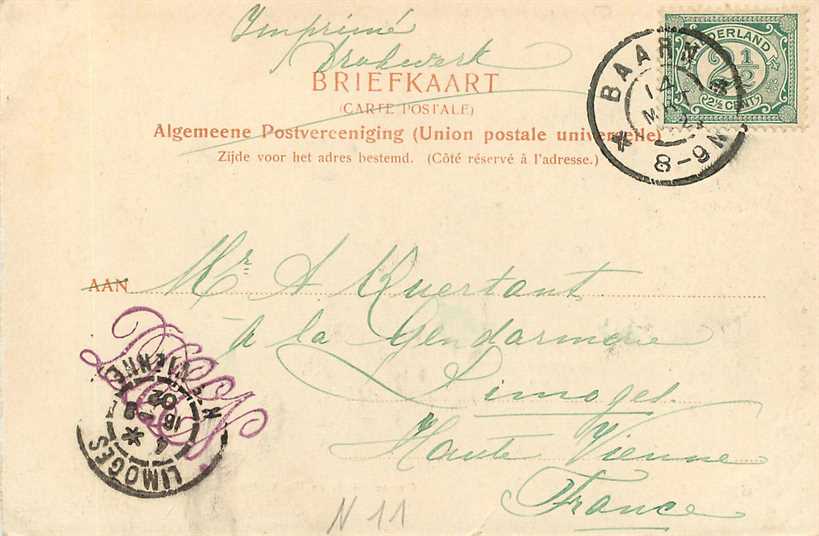 Imprimé
Drukwerk
BRIEFKAART
(CARTE POSTALE)
Algemeene Postvereeniging (Union postale universelle)
Zijde voor het adres bestemd. (Côté réservé à l'adresse.)
NEDERLAND
2½
2½ CENT
BAARN
8-9 N
AAN Mr A Quertant
à la Gendarmerie
Limoges
Haute Vienne
France
LIMOGES
VIENNE
N 11